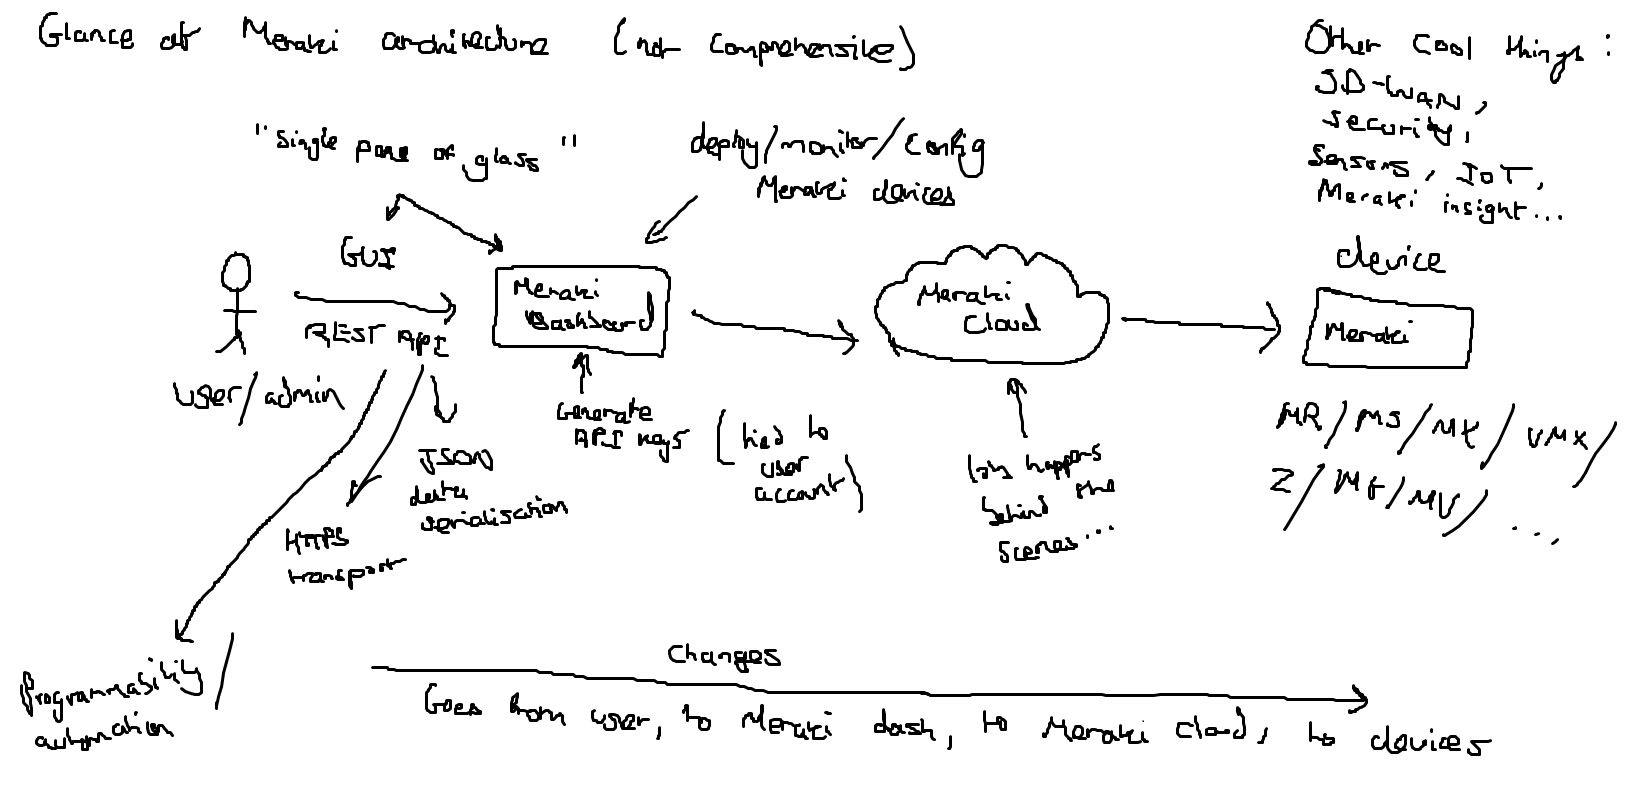 Glance at Meraki architecture (not comprehensive)
Other cool things:
SD-WAN,
security,
Sensors, IoT,
Meraki insight...
"Single pane of glass"
deploy/monitor/config
Meraki devices
GUI
REST API
user/admin
Meraki
Dashboard
Meraki
Cloud
device
Meraki
Generate
API keys
(tied to
user
account)
JSON
data
serialisation
HTTPS
transport
lots happens
behind the
scenes...
MR/MS/MX/vMX/
Z/MG/MV/...
Programmability/
automation
Changes
Goes from user, to Meraki dash, to Meraki Cloud, to devices